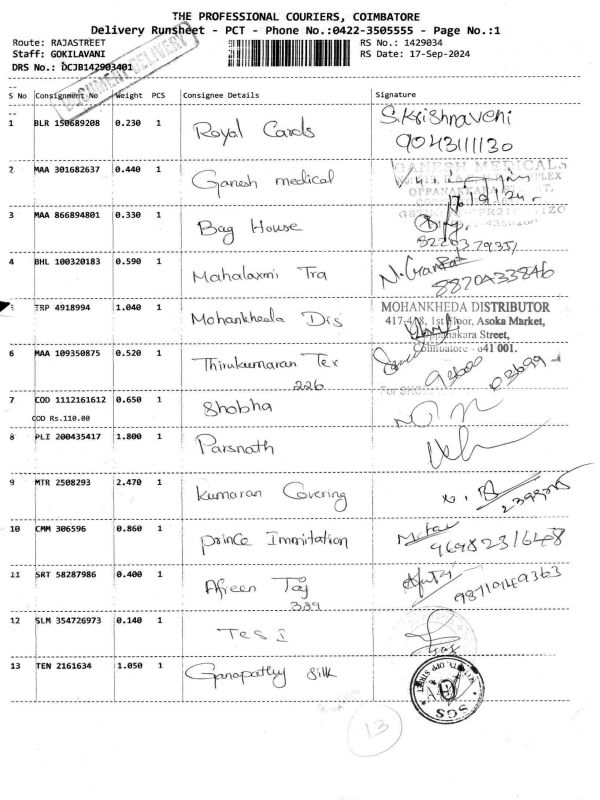 THE PROFESSIONAL COURIERS, COIMBATORE
Delivery Runsheet - PCT - Phone No.:0422-3505555 - Page No.:1
Route: RAJASTREET RS No.: 1429034
Staff: GOKILAVANI RS Date: 17-Sep-2024
DRS No.: DCJB142903401
DOCUMENT DELIVERY
S No Consignment No Weight PCS Consignee Details Signature
1 BLR 150689208 0.230 1 Royal Cards S.Krishnaveni
9043111130
2 MAA 301682637 0.440 1 Ganesh medical GANESH MEDICALS
3 MAA 866894801 0.330 1 Bag House
4 BHL 100320183 0.590 1 Mahalaxmi Tra
8870433846
5 TRP 4918994 1.040 1 Mohankheda Dis MOHANKHEDA DISTRIBUTOR
1st Floor, Asoka Market,
Street,
Coimbatore - 641 001.
6 MAA 109350875 0.520 1 Thirukumaran Tex
226
7 COD 1112161612 0.650 1 Shobha
COD Rs.110.00
8 PLI 200435417 1.800 1 Parsnath
9 MTR 2508293 2.470 1 Kumaran Covering
10 CMM 306596 0.860 1 prince Immitation
9698231648
11 SRT 58287986 0.400 1 Afreen Taj
389
12 SLM 354726973 0.140 1 Tes I
13 TEN 2161634 1.050 1 Ganapathy silk
SGS
13